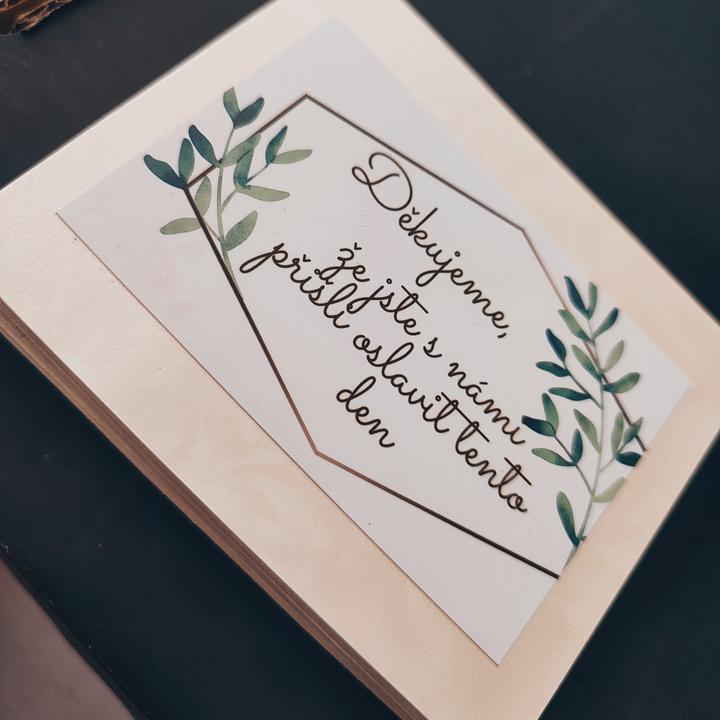 Děkujeme,
že jste s námi
přišli oslavit tento
den